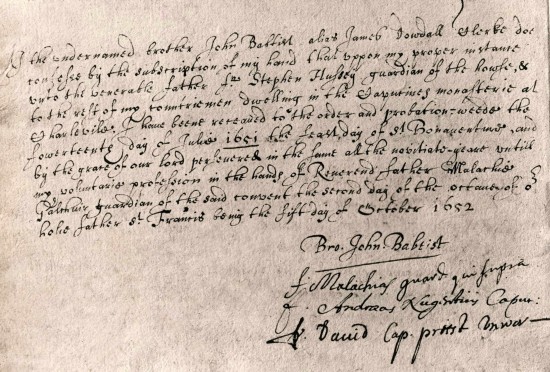 I the undernamed brother John Babtist alias James Dowdall Clerke doe
confesse by the subscription of my hand that uppon my proper instance
unto the venerable father fa: Stephen Hussey guardian of the howse, &
to the rest of my contriemen dwelling in the Capucines monasterie at
Charlevile, I have been receaued to the order and probation-weede the
fowerteenth day of Julie 1651 the feast day of St Bonaventure, and
by the grace of our lord persevered in the same all the novitiate-yeare untill
my voluntarie profession in the hands of Reverend father Malachie
guardian of the said convent the second day of the octave of or
holie father St. Francis being the fift day of October 1652
Bro. John. Babtist
f. Malachias guard qui supra
f. Andreas Nugentius Capu:
f. David Cap. priest